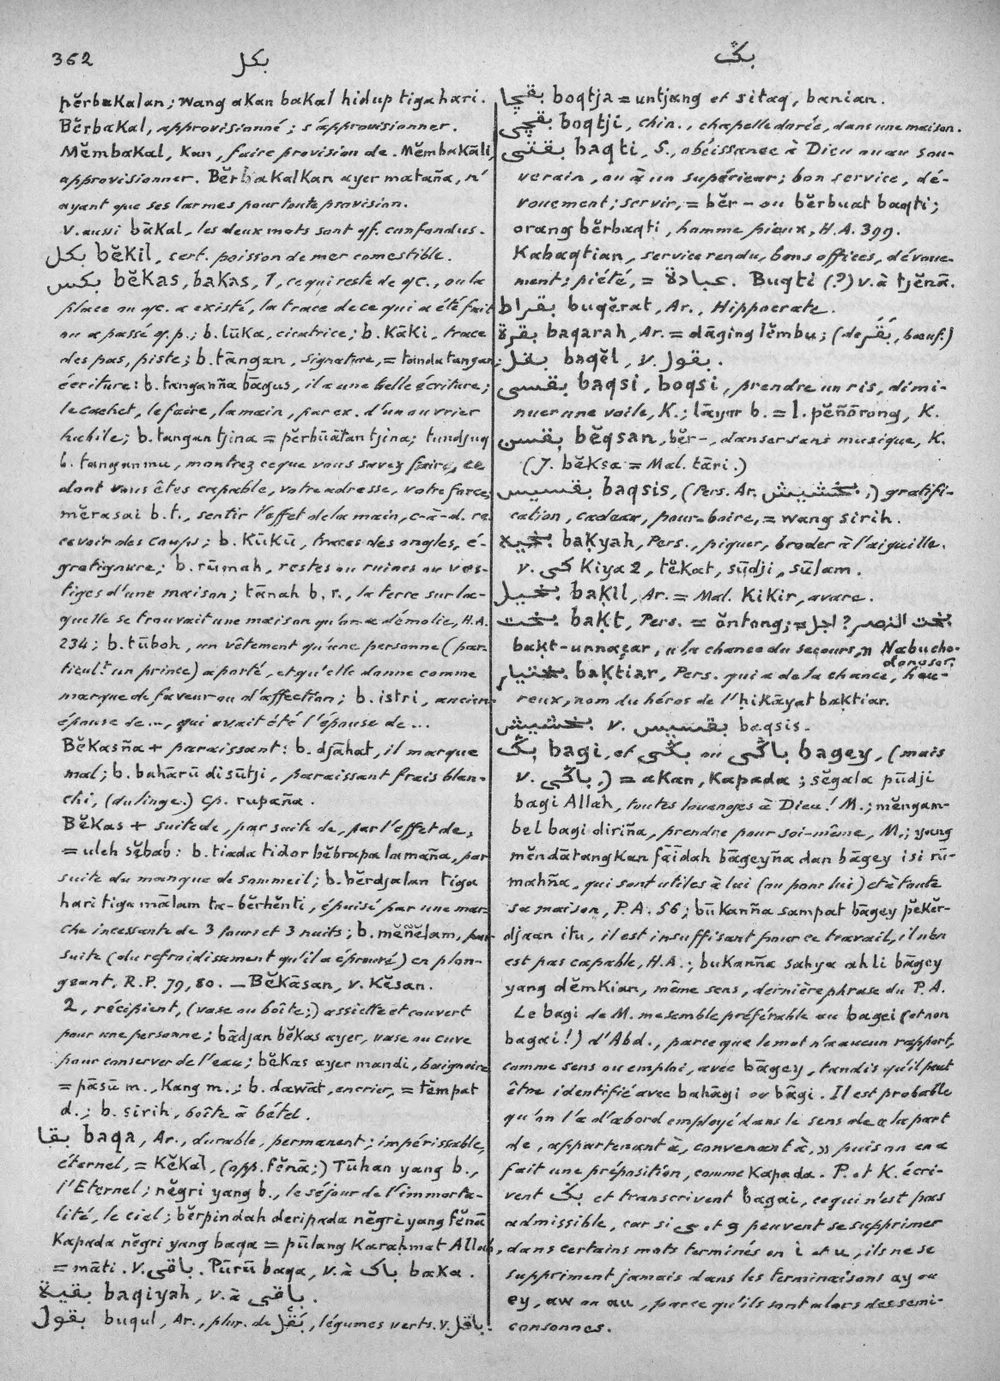 362
بكل
بڬ
pĕrbakalan; wang akan bakal hidup tiga hari.
Bĕrbakal, approvisionné; s'approvisionner.
Mĕmbakal, kan, faire provision de. Mĕmbakāli,
approvisionner. Bĕrbakalkan ayer matañа, n'
ayant que ses larmes pour toute provision.
V. aussi bākal, les deux mots sont qf. confondus.
بكل bĕkil, cert. poisson de mer comestible.
بكس bĕkas, bakas, 1, ce qui reste de qc., ou la
place ou qc. a existé, la trace de ce qui a été fait
ou a passé q.p.; b. lūka, cicatrice; b. kāki, trace
des pas, piste; b. tāngan, signature, = tanda tangan;
écriture: b. tangañña bāgus, il a une belle écriture;
le cachet, le faire, la main, par ex. d'un ouvrier
habile; b. tangan tjina = pĕrbūātan tjina; tundjuq
b. tanganmu, montrez ce que vous savez faire, ce
dont vous êtes capable, votre adresse, votre force;
mĕrasai b.t., sentir l'effet de la main, c-à-d. re
cevoir des coups; b. kūkū, traces des ongles, é-
gratignure; b. rūmah, restes ou ruines ou ves-
tiges d'une maison; tānah b. r., la terre sur la-
quelle se trouvait une maison qu'on a démolie, H.A.
234; b. tūboh, un vêtement qu'une personne (par-
ticult un prince) a porté, et qu'elle donne comme
marque de faveur ou d'affection; b. istri, ancien-
épouse de..., qui avait été l'épouse de...
Bĕkasña + paraissant: b. djāhat, il marque
mal; b. bahārū di sūtji, paraissant frais blan-
chi, (du linge.) Cp. rupaña.
Bĕkas + suite de, par suite de, par l'effet de,
= uleh sĕbab: b. tiada tidor bĕbrapa lamaña, par
suite du manque de sommeil; b. bĕrdjalan tiga
hari tiga mālam ta-bĕrhĕnti, épuisé par une mar-
che incessante de 3 jours et 3 nuits; b. mĕñĕlam, par
suite (du refroidissement qu'il a éprouvé) en plon-
geant, R.P. 79, 80. — Bĕkāsan, v. kĕsan.
2, récipient, (vase ou boîte;) assiette et couvert
pour une personne; bādjan bĕkas ayer, vase ou cuve
pour conserver de l'eau; bĕkas ayer mandi, baignoire
= pāsū m., kang m.; b. dawāt, encrier, = tĕmpat
d.; b. sirih, boîte à bétel.
بقا baqa, Ar., durable, permanent; impérissable,
éternel, = kĕkal, (opp. fĕnā;) Tūhan yang b.,
l'Eternel; nĕgri yang b., le séjour de l'immorta-
lité, le ciel; bĕrpindah deripada nĕgri yang fĕnā
kapada nĕgri yang baqa = pūlang karaḥmat Allah,
= māti. v. باقى. Pūrū baqa, v. à باک baka.
بقية baqiyah, v. à باقى.
بقول buqul, Ar., plur. de بَقْل, légumes verts. v. باقل.
بقچا boqtja = untjang et sitaq, banian.
بقچى boqtji, Chin., chapelle dorée, dans une maison.
بقتى baqti, S., obéissance à Dieu ou au sou-
verain, ou à un supérieur; bon service, dé-
vouement; servir, = bĕr – ou bĕrbuat baqti;
orang bĕrbaqti, homme pieux, H.A. 399.
Kabaqtian, service rendu, bons offices, dévoue-
ment; piété, = عبادة. Buqti (?) v. à tjĕnā.
بقراط buqĕrat, Ar., Hippocrate.
بقرة baqarah, Ar. = dāging lĕmbu; (de بَقَر, bœuf.)
بقل baqĕl, v. بقول.
بقسى baqsi, boqsi, prendre un ris, dimi-
nuer une voile, K.; lāyar b. = l. pĕñōrong, K.
بقسن bĕqsan, bĕr-, danser sans musique, K.
(J. bĕksa = Mal. tāri.)
بقسيس baqsis, (Pers. Ar. بخشيش,) gratifi-
cation, cadeau, pour-boire, = wang sirih.
بخيه baḳyah, Pers., piquer, broder à l'aiguille.
v. كى Kiya 2, tĕkat, sūdji, sūlam.
بخيل baḳil, Ar. = Mal. kikir, avare.
بخت baḳt, Pers. = ŏntong; = اجل? بخت النصر
baḳt-unnaçar, « la chance du secours, » Nabucho-
donosor.
بختيار baḳtiar, Pers. qui a de la chance, heu-
reux, nom du héros de l'ḥikāyat baḳtiar.
بخشيش v. بقسيس beqsis.
بڬ bagi, et بڬى ou باڬى bagey, (mais
v. باڬى,) = akan, kapada; sĕgala pūdji
bagi Allah, toutes louanges à Dieu! M.; mĕngam-
bel bagi diriña, prendre pour soi-même, M.; yang
mĕndātangkan fāïdah bāgeyña dan bāgey isi rū-
mahña, qui sont utiles à lui (ou pour lui) et à toute
sa maison, P.A. 56; būkanña sampat bāgey pĕkĕr-
djaan itu, il est insuffisant pour ce travail, il n'en
est pas capable, H.A.; bukanña sahya ahli bāgey
yang dĕmkian, même sens, dernière phrase du P.A.
Le bagi de M. me semble préférable au bagei (et non
bagai!) d'Abd., parce que le mot n'a aucun rapport,
comme sens ou emploi, avec bāgey, tandis qu'il peut
être identifié avec bahāgi ou bāgi. Il est probable
qu'on l'a d'abord employé dans le sens de « la part
de, appartenant à, convenant à, » puis on en a
fait une préposition, comme kapada. P. et K. écri-
vent بڬ et transcrivent bagai, ce qui n'est pas
admissible, car si ى et و peuvent se supprimer
dans certains mots terminés en i et u, ils ne se
suppriment jamais dans les terminaisons ay ou
ey, aw ou au, parce qu'ils sont alors des semi-
consonnes.